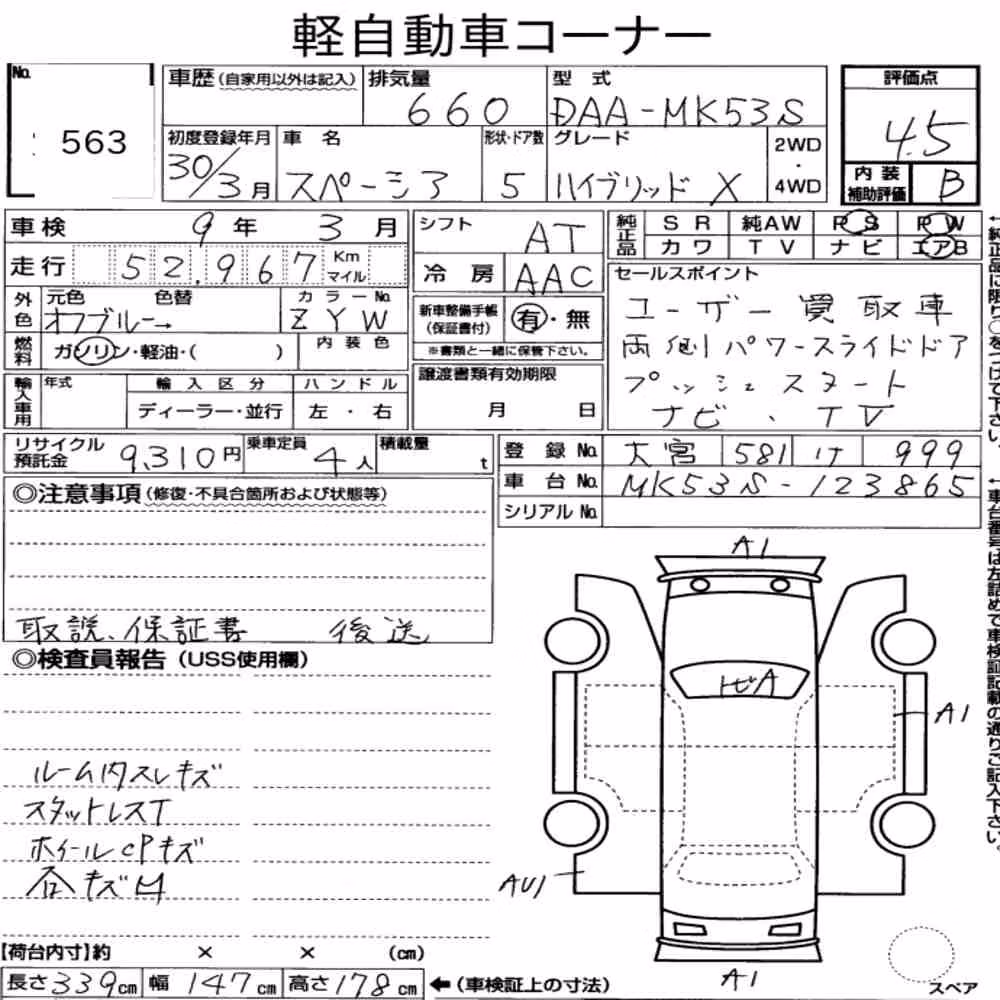 軽自動車コーナー
No. 563
車歴 (自家用以外は記入) 排気量 660 型式 DAA-MK53S
評価点 4.5
初度登録年月 30/3月 車名 スペーシア 形状・ドア数 5 グレード ハイブリッド X 2WD・4WD
内装補助評価 B
車検 9年 3月 シフト AT 純正品 SR 純AW PS PW
走行 52,967 Km マイル 冷房 AAC カワ TV ナビ エアB
外色 元色 オフブルー→ 色替 カラーNo. ZYW
新車整備手帳(保証書付) 有・無
※書類と一緒に保管下さい。
燃料 ガソリン・軽油・( ) 内装色
セールスポイント
ユーザー買取車
両側パワースライドドア
プッシュスタート
ナビ、TV
輸入車用 年式 輸入区分 ディーラー・並行 ハンドル 左・右
譲渡書類有効期限 月 日
リサイクル預託金 9,310円 乗車定員 4人 積載量 t
登録No. 大宮 581 け 999
車台No. MK53S-123865
シリアルNo.
◎注意事項(修復・不具合箇所および状態等)
取説、保証書 後送
◎検査員報告(USS使用欄)
ルーム内スレキズ
スタットレスT
ホイールcPキズ
A1
A1
AU1
A1
【荷台内寸】約 × × (cm)
長さ339cm 幅147cm 高さ178cm ←(車検証上の寸法)
スペア
←純正品に限り○をつけて下さい。
←車台番号は左詰めで車検証記載の通りご記入下さい。